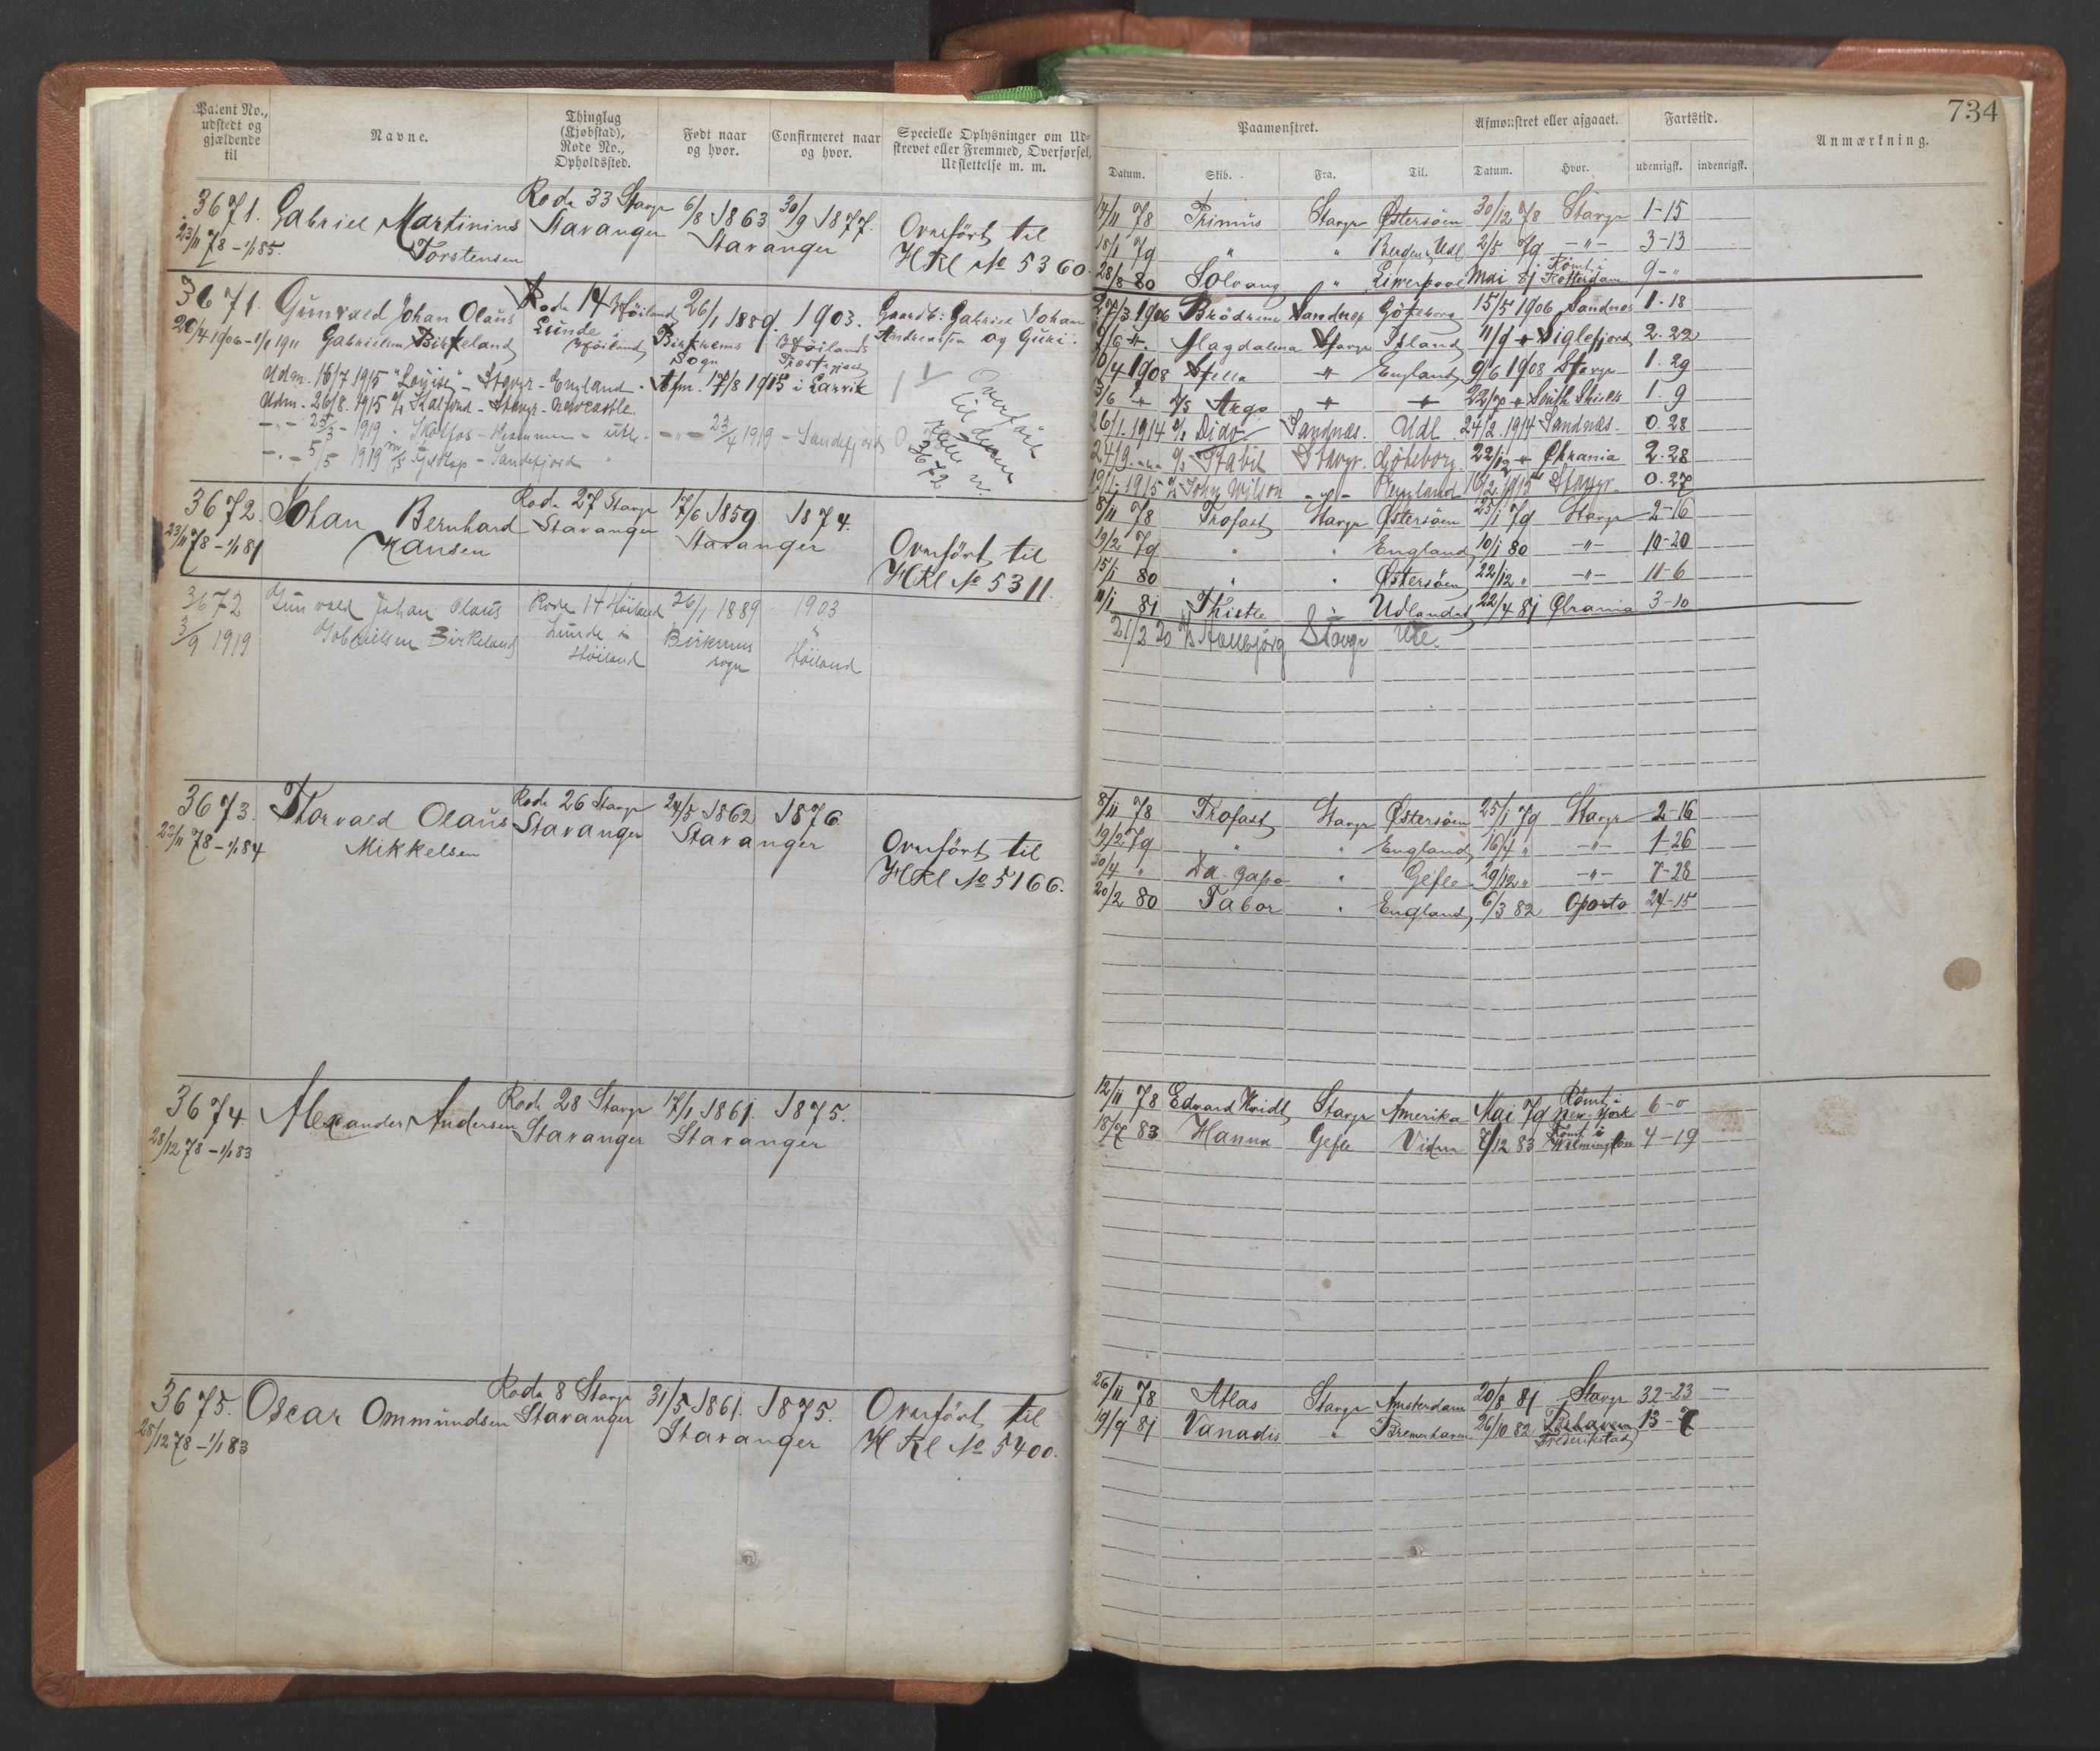 Patent No., udstedt og gjældende til
Navne.
Thinglag (Kjøbstad), Rode No., Opholdssted.
Født naar og hvor.
Confirmeret naar og hvor.
Specielle Oplysninger om Udskrevet eller Fremmed, Overførsel, Udslettelse m. m.
3671. Gabriel Martinius Rode 33 Stavgr 6/8 1863 30/9 1877.
23/11 78 - 1/1 85. Torstensen Stavanger Stavanger Overført til
HRl No 5360.
3671. Gunvald Johan Olaus Rode 14 Høiland 26/1 1889. 1903. Gaardb: Gabriel Johan
20/4 1906 - 1/1 1911 Gabrielsen Birkeland Lunde i Høiland Birkrems Sogn Høilands Præstegjeld Andreassen og Guri.
Udm. 16/7 1915 "Louise" - Stavgr - England - Afm. 17/8 1915 i Larvik
Udm. 26/8 1915 - Stavgr - Newcastle.
-"- 25/3 - 1919 - Skotfos - - utl. -"- 23/4 1919 - Sandefjord
-"- 5/5 1919 - Sandefjord
Overført til rulle nr. 3672
3672. Johan Bernhard Rode 27 Stavgr 17/6 1859. 1874.
23/11 78 - 1/1 81 Hansen Stavanger Stavanger Overført til
HRl No 5311.
3672 Gunvald Johan Olaus Rode 14 Høiland 26/1 1889 1903
3/9 1919 Gabrielsen Birkeland Lunde i Høiland Birkrems sogn Høiland
3673. Thorvald Olaus Rode 26 Stavgr 24/5 1862 1876.
23/11 78 - 1/1 84 Mikkelsen Stavanger Stavanger Overført til
HRl No 5166.
3674 Alexander Andersen Rode 28 Stavgr 17/1 1861. 1875.
28/12 78 - 1/1 83 Stavanger Stavanger
3675. Oscar Ommundsen Rode 8 Stavgr 31/5 1861. 1875. Overført til
28/12 78 - 1/1 83 Stavanger Stavanger HRl No 5400.
734
Paamønstret.
Afmønstret eller afgaaet.
Fartstid.
Anmærkning.
Datum. Skib. Fra. Til. Datum. Hvor. udenrigst. indenrigst.
14/11 78 Primus Stavgr Østersøen 30/12 78 Stavgr 1-15
18/1 79 " " Bergen Udl 2/5 79 -"- 3-13
28/8 80 Solvang " Liverpool Mai 81 Rømt i Rotterdam 9-"
27/3 1906 Brödrene Sandnes Göteborg 15/5 1906 Sandnes 1-18
Magdalena Stavgr Island 11/9 " Siglefjord 2.22
10/4 1908 Stella -"- England 9/6 1908 Stavgr 1.29
3/6 " D/S Argo " " 22/7 " South Shields 1.9
26/1 1914 Dido Sandnes. Udl. 24/2 1914 Sandnes. 0.28
24/9 -"- Stabil Stavgr. Göteborg 22/12 " Chrania 2.28
19/1-1915 John Wilson -"- England 16/2 1915 Stavgr. 0.27
8/11 78 Trofast Stavgr Østersøen 25/1 79 Stavgr 2-16
19/2 79 " " England 10/1 80 -"- 10-20
15/1 80 " " Østersøen 22/12 " -"- 11-6
11/1 81 Thistle " Udlandet 22/4 81 Chrania 3-10
21/2 20 Stavgr Utl.
8/11 78 Trofast Stavgr Østersøen 25/1 79 Stavgr 2-16
19/2 79 " " England 16/4 " -"- 1-26
30/4 " Da-gapo " Gefle 29/12 " -"- 7-28
20/2 80 Tabor " England 6/3 82 Oporto 24-15
12/11 78 Edvard Hvidt Stavgr Amerika Mai 79 Rømt i New-York 6-0
18/7 83 Hanna Gefle Videre 7/12 83 Rømt i Wilmington 4-19
26/11 78 Atlas Stavgr Amsterdam 20/8 81 Stavgr 32-23 -
19/9 81 Vanadis " Bremerhaven 26/10 82 Frederikstad 13-7